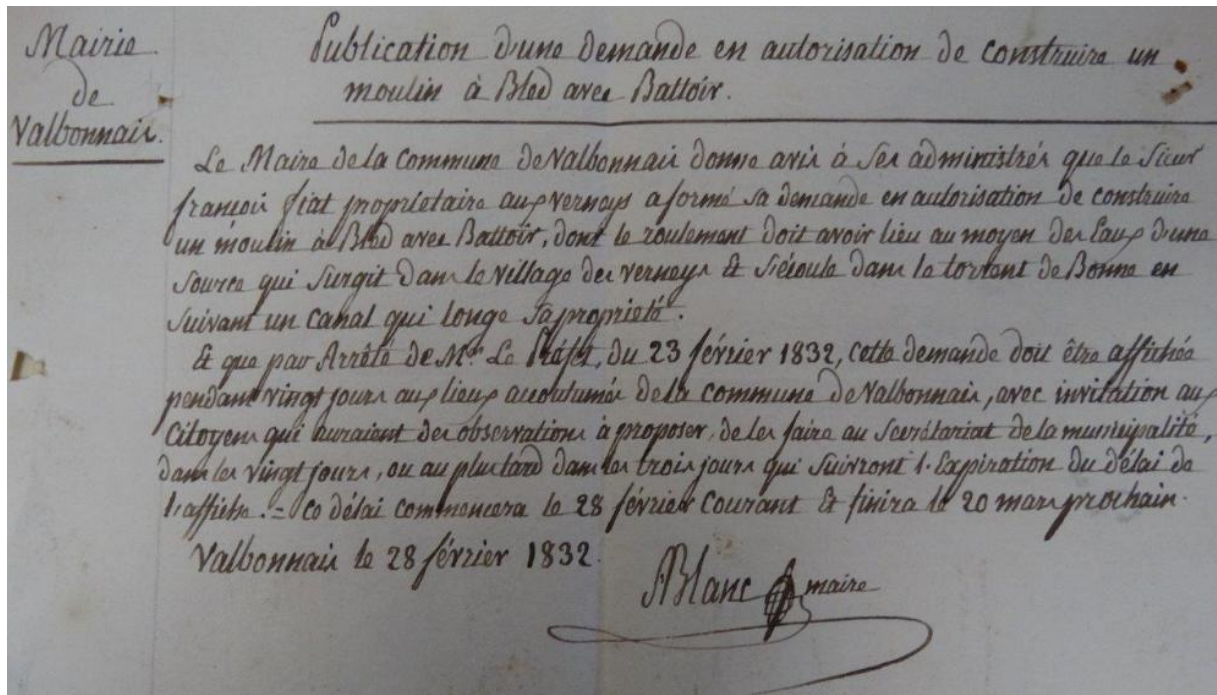 Mairie
de
Valbonnais.
Publication d'une demande en autorisation de construire un
moulin à Bled avec Battoir.
Le Maire de la Commune de Valbonnais donne avis à Ses administrés que le Sieur
françois fiat propriétaire aux verneys a formé sa demande en autorisation de construire
un moulin à Bled avec Battoir, dont le roulement doit avoir lieu au moyen des Eaux d'une
Source qui Surgit dans le village des verneys Et S'écoule dans le torrent de Bonne en
Suivant un Canal qui longe Sa propriété.
Et que par Arrêté de Mr. Le Préfet, du 23 février 1832, cette demande doit être affichée
pendant vingt jours aux lieux accoutumés de la commune de Valbonnais, avec invitation aux
Citoyens qui auraient des observations à proposer, de les faire au Secrétariat de la municipalité,
dans les vingt jours, ou au plus tard dans les trois jours qui Suivront l'Expiration du délai de
l'affiche. = Ce délai commencera le 28 février Courant Et finira le 20 mars prochain.
Valbonnais le 28 février 1832.
ABlanc maire